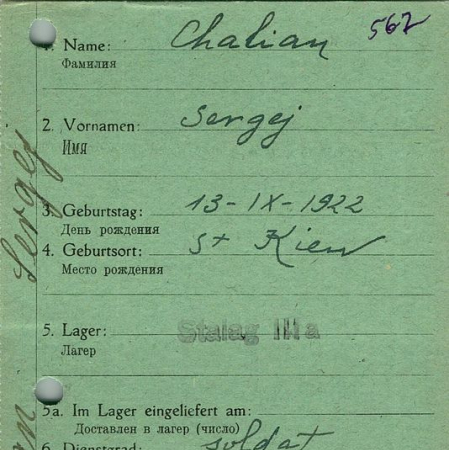 562
1. Name: Chalian
Фамилия
2. Vornamen: Sergej
Имя
3. Geburtstag: 13-IX-1922
День рождения
4. Geburtsort: st Kiew
Место рождения
5. Lager: Stalag III a
Лагерь
5a. Im Lager eingeliefert am:
Доставлен в лагерь (число)
6. Dienstgrad: soldat
Sergej